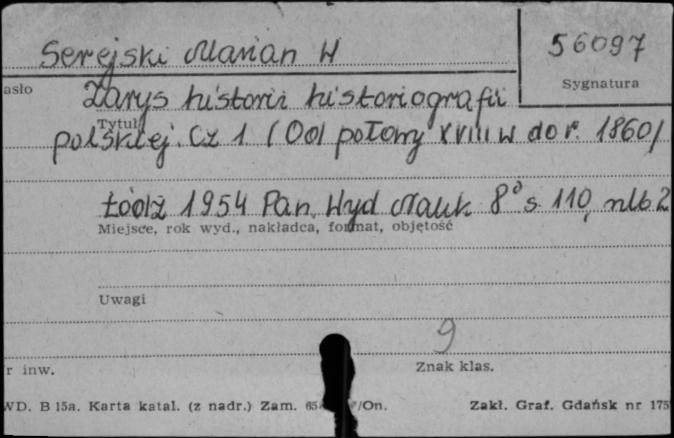 Serejski Marian W
56097
Sygnatura
asło
Zarys historii historiografii
Tytuł
polskiej. Cz 1 (Od połowy XVIII w do r. 1860/
Łódź 1954 Pań. Wyd Nauk 8° s. 110, nlb 2
Miejsce, rok wyd., nakładca, format, objętość
Uwagi
9
r inw.
Znak klas.
WD. B 15a. Karta katal. (z nadr.) Zam. /On.
Zakł. Graf. Gdańsk nr 175